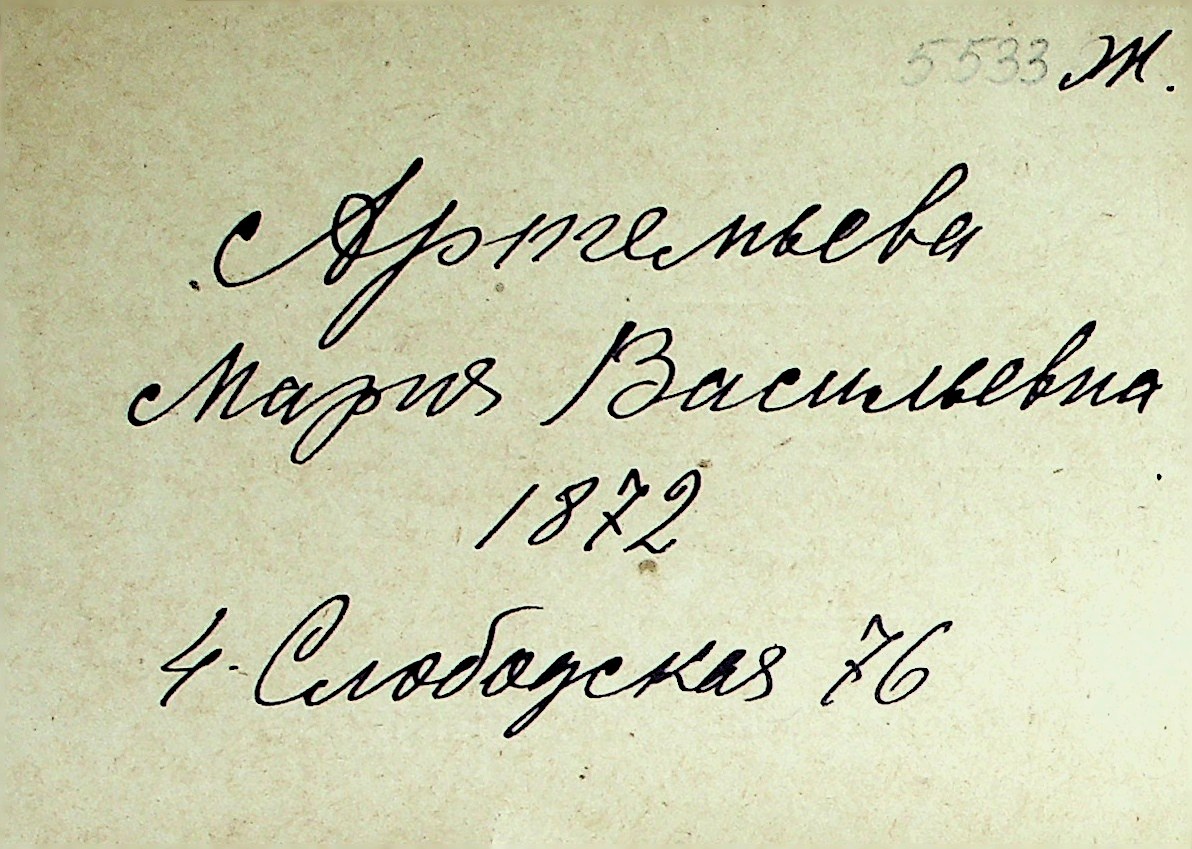 5533 Ж.
Артемьева
Мария Васильевна
1872
4. Слободская 76